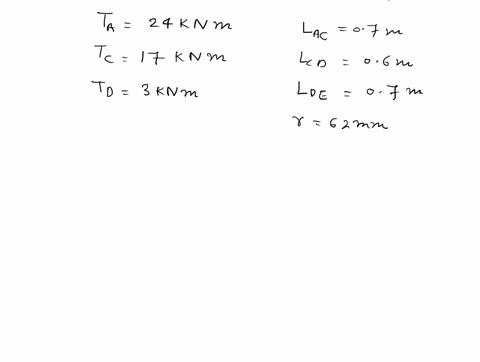 T_A = 24 KNm
T_C = 17 KNm
T_D = 3 KNm
L_AC = 0.7 m
L_CD = 0.6 m
L_DE = 0.7 m
r = 62 mm